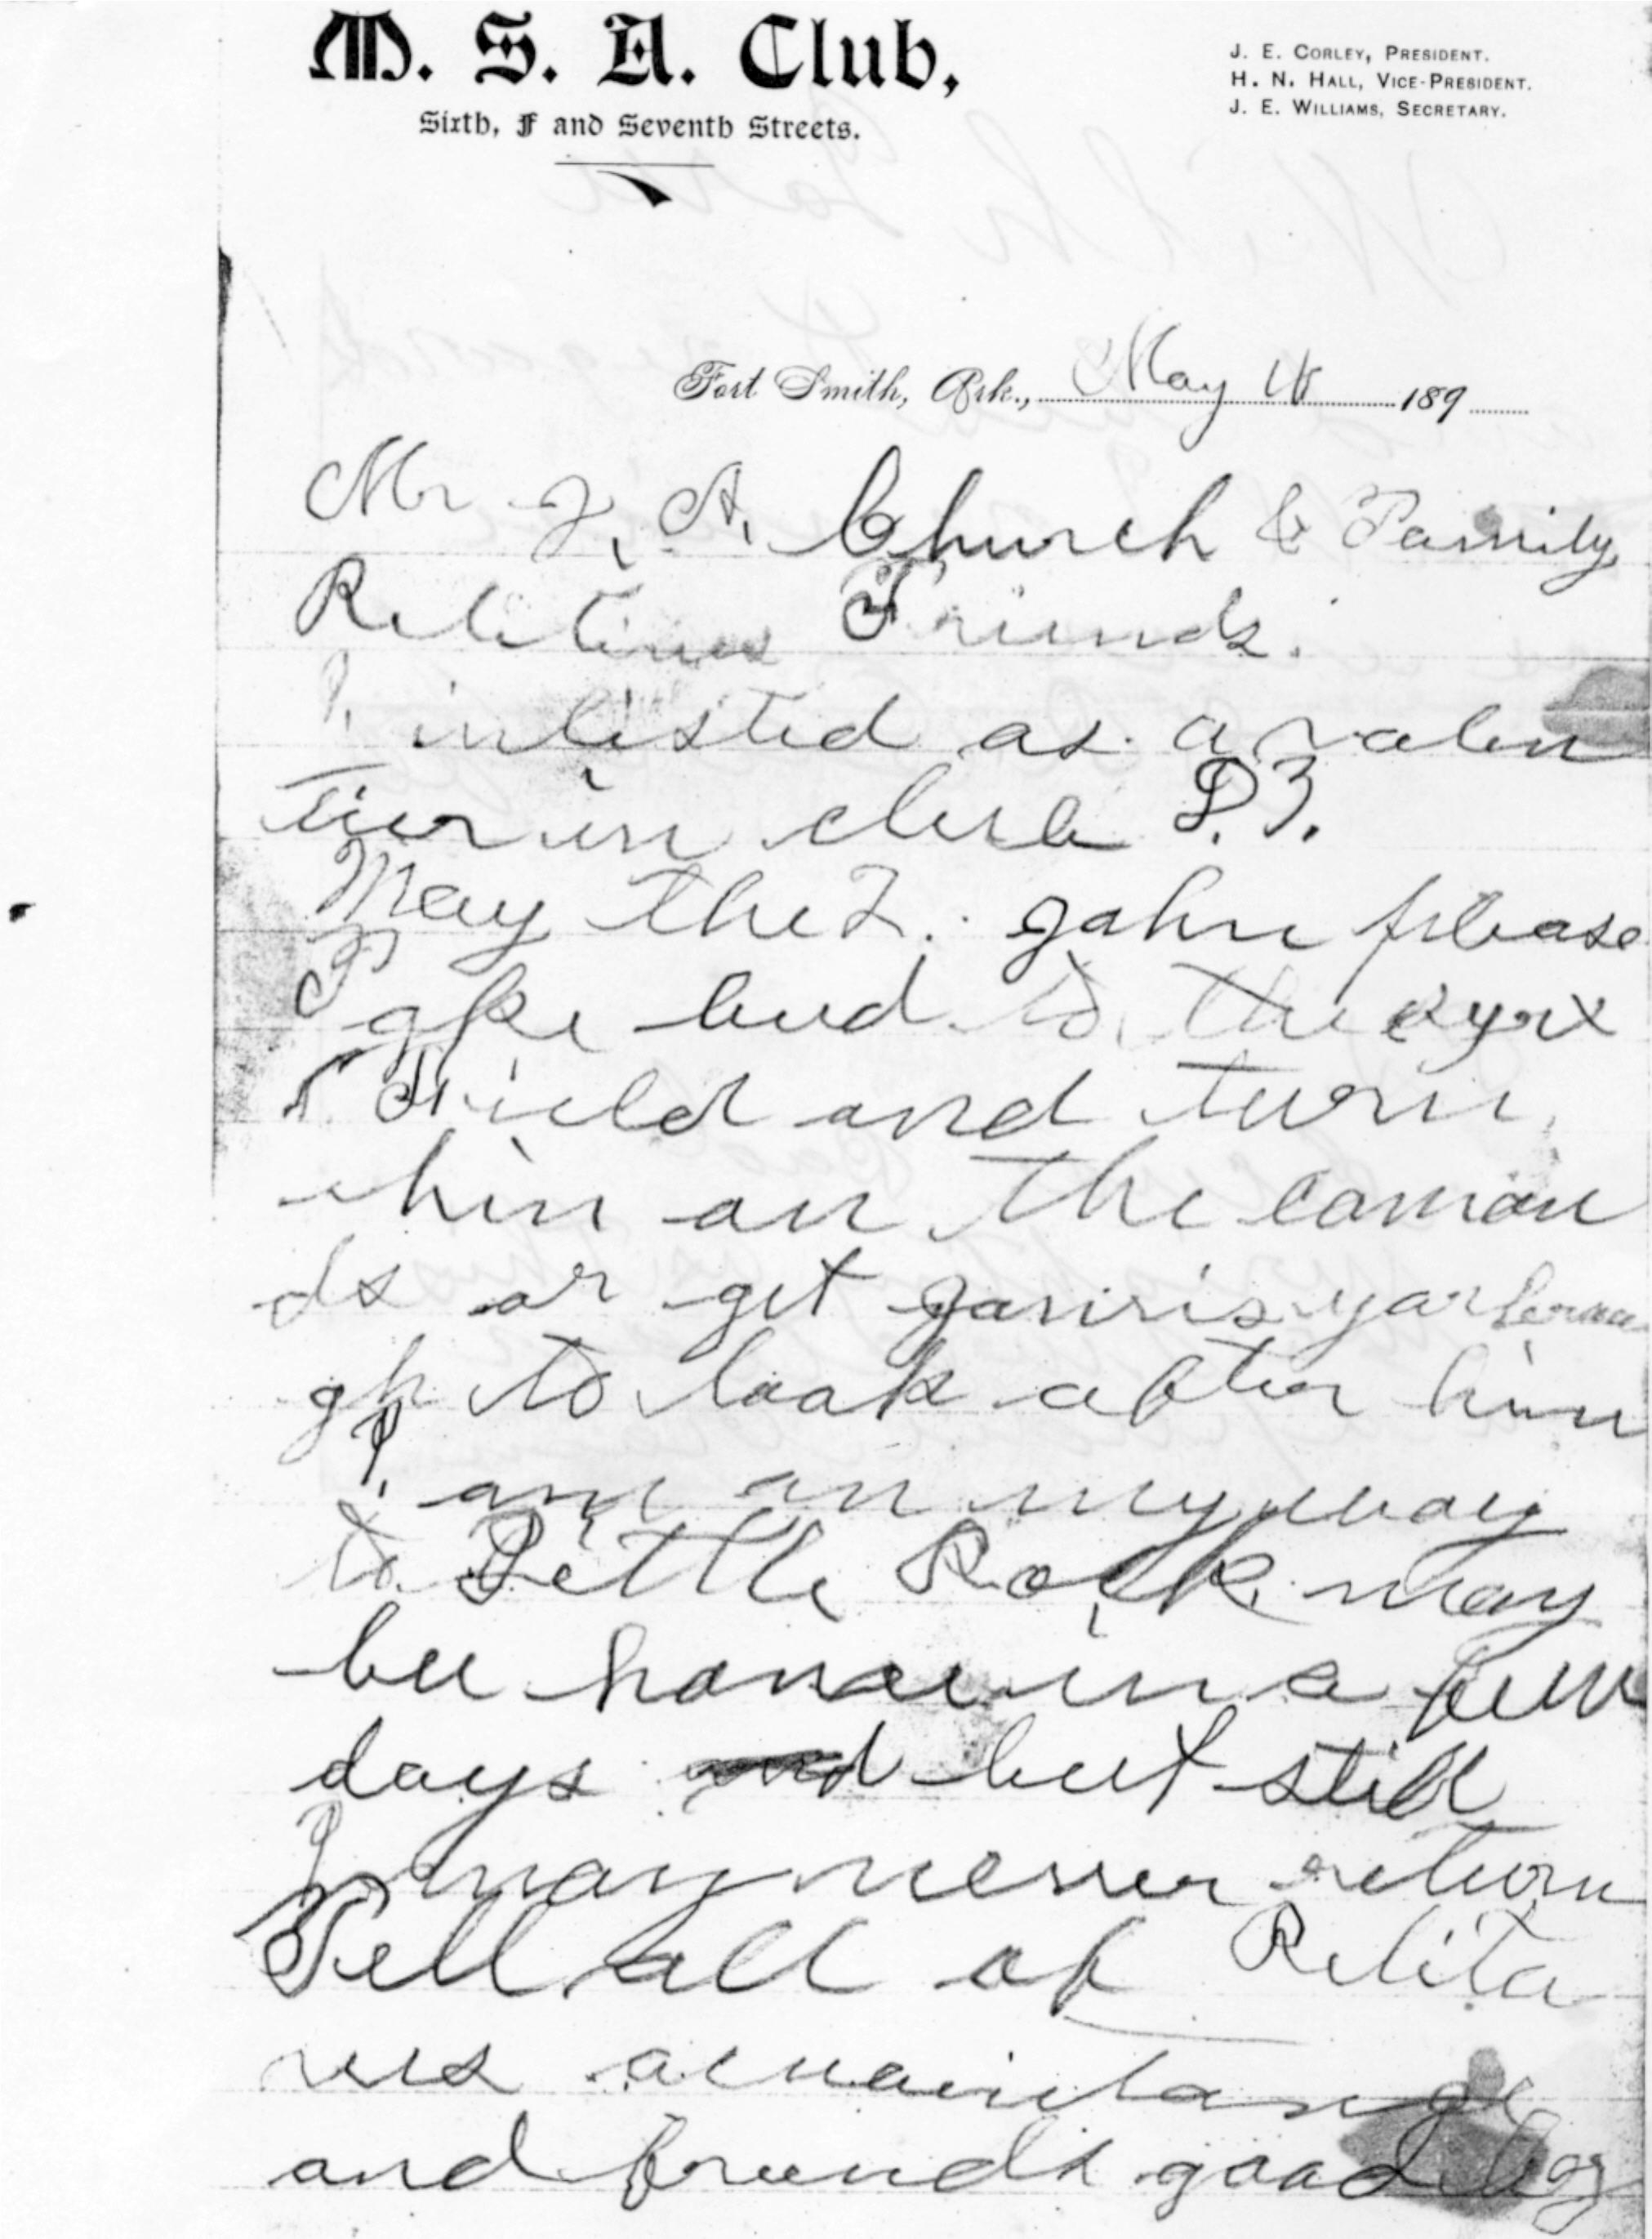 M. S. A. Club,
Sixth, F and Seventh Streets.
J. E. CORLEY, PRESIDENT.
H. N. HALL, VICE-PRESIDENT.
J. E. WILLIAMS, SECRETARY.
Fort Smith, Ark., May 189
Mr J. A. Church & Family
Friends.
I inlisted as a valen
tier in club
May the john please
Take bud to the
Field and turn
him on the comon
ds or get yarbrau
gh to look after him
I am on my way
to Little Rock may
be home in a few
days and but still
I may never return
Tell all of Relita
ves
and friends good by